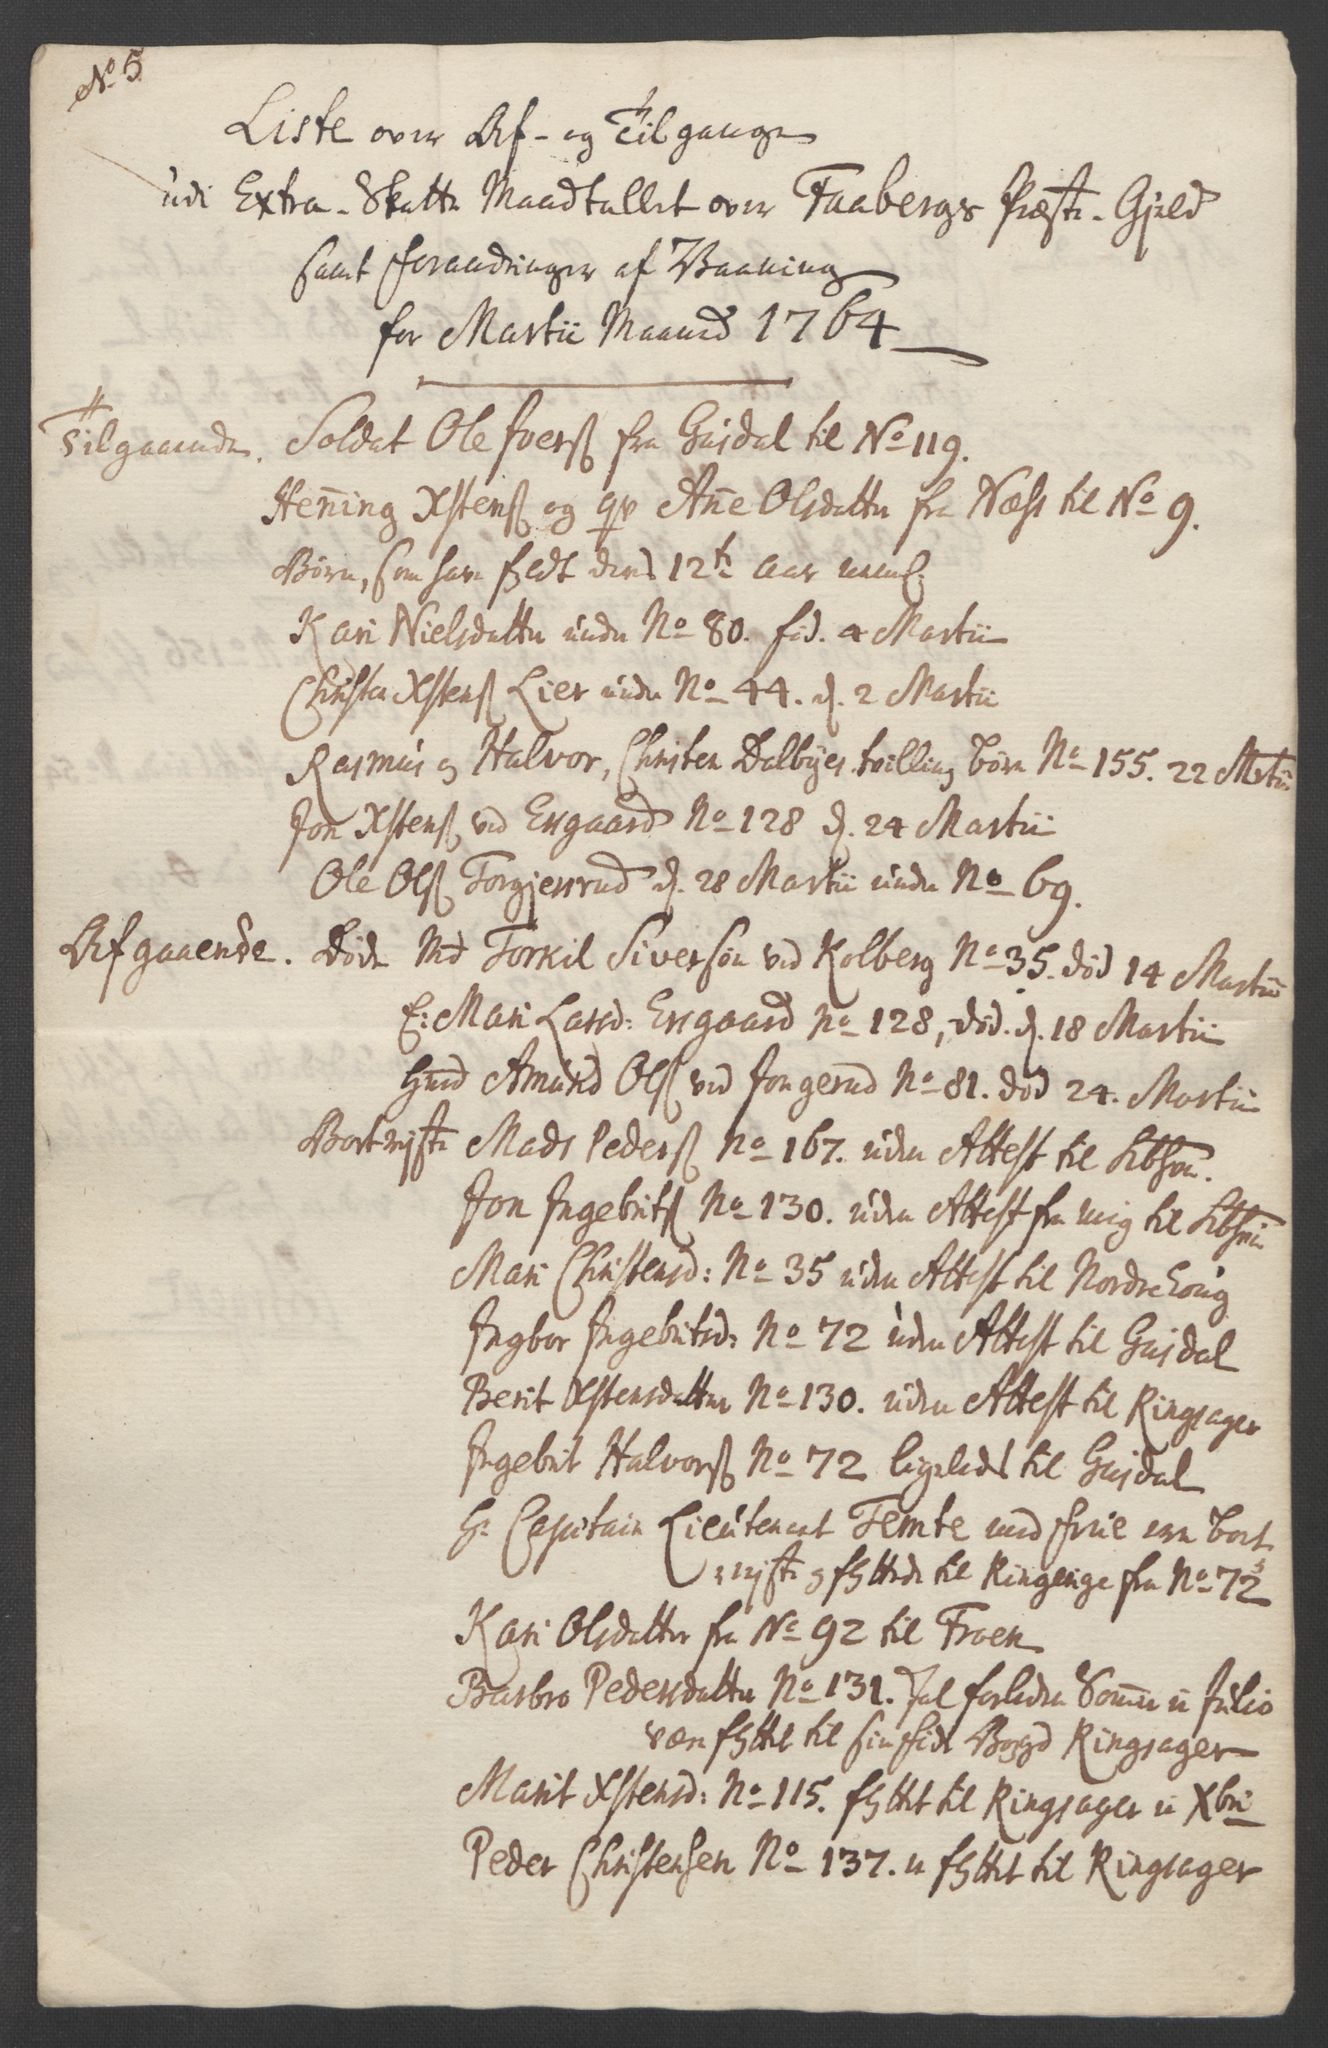 No 5
Liste over Af- og Tilgangen
udi Extra-Skatte Mandtallet over Faabergs Præste-Gjeld
samt forandringer af Vaaning
for Martii Maaned 1764
Tilgaaende. Soldat Ole Iverß fra Gusdal til No 119.
Hen̄ing Xstenß og qv An̄e Olsdatter fra Næss til No 9.
Børn, som have fyldt deres 12te Aar neml.
Kari Nielsdatter under No 80. fød. 4 Martii
Christen Xstenß Lier under No 44. d. 2 Martii
Rasmus og Halvor, Christen Dalbyes tvilling børn No 155. 22 Martii
Jon Xstenß ved Ersgaard No 128 d. 24 Martii
Ole Olß Torgjersrud d. 28 Martii under No 69.
Afgaaende. Døde Md Torkil Siversøn ved Kolberg No 35. død 14 Martii
E: Mari Larsd: Ersgaard No 128, død. d. 18 Martii
Amund Olß ved Jongerud No 81. død 24. Martii
Bortreyste Mads Pederß No 167. uden Attest til
Jon Ingebritß No 130. uden Attest fra mig til
Mari Christensd: No 35 uden Attest til Nordrehoug
Ingbor Ingebritsd: No 72 uden Attest til Gusdal
Berit Xstensdatter No 130. uden Attest til Ringsager
Ingebrit Halvorß No 72 ligeledes til Gusdal
Hr Capitain Lieutenant Temte med frue ere bort-
reyste og flyttede til Ringerige fra No 72
Kari Olsdatter fra No 92 til Froen
Barbro Pedersdatter No 131. skal forleden Som̄er i Julio
være flyttet til sin føde Bøyd Ringsager
Marit Xstensd: No 115. flyttet til Ringsager i Xbri
Peder Christensen No 137. er flyttet til Ringsager